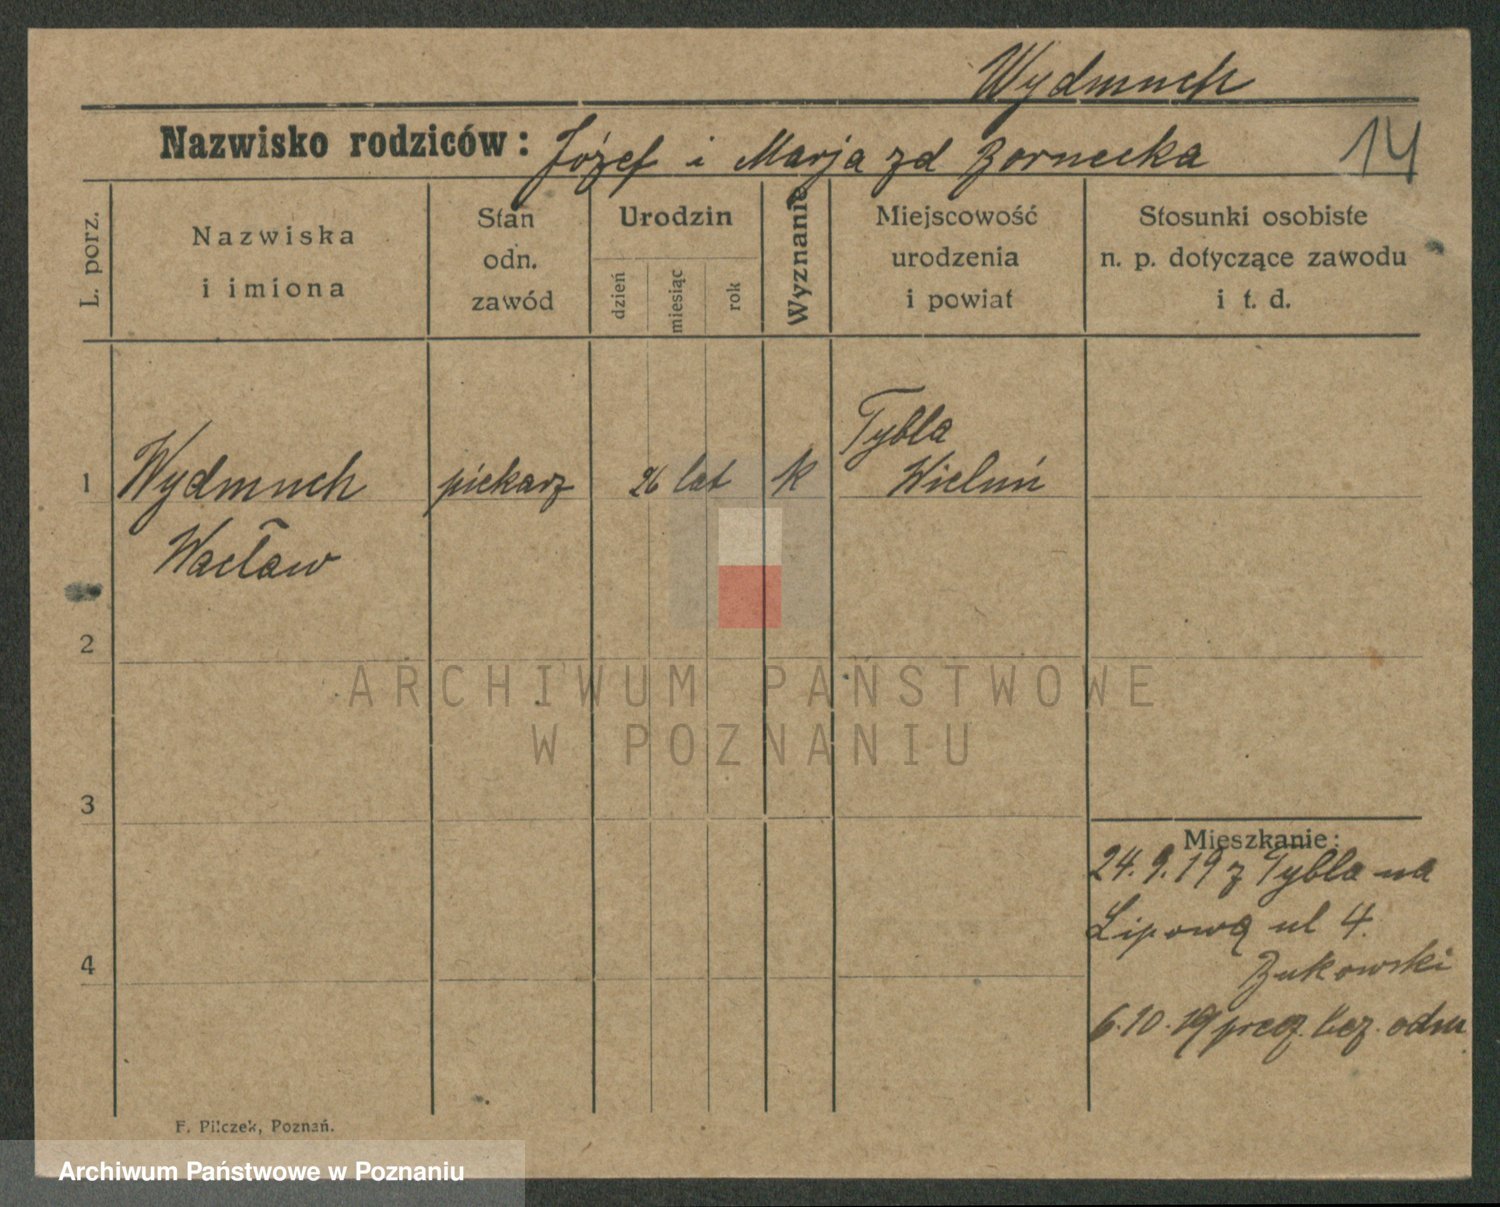 Wydmuch
Nazwisko rodziców: Józef i Marja zd Zornecka
14
L. porz.
Nazwiska
i imiona
Stan
odn.
zawód
Urodzin
dzień
miesiąc
rok
Wyznanie
Miejscowość
urodzenia
i powiat
Stosunki osobiste
n. p. dotyczące zawodu
i t. d.
1
Wydmuch
Wacław
piekarz
26 lat
k
Tybla
Wieluń
2
3
4
Mieszkanie:
24.9.19 z Tybla na
Lipową ul 4.
Żukowski
6.10.19 bez. odm
F. Pilczek, Poznań.
ARCHIWUM PAŃSTWOWE
W POZNANIU
Archiwum Państwowe w Poznaniu